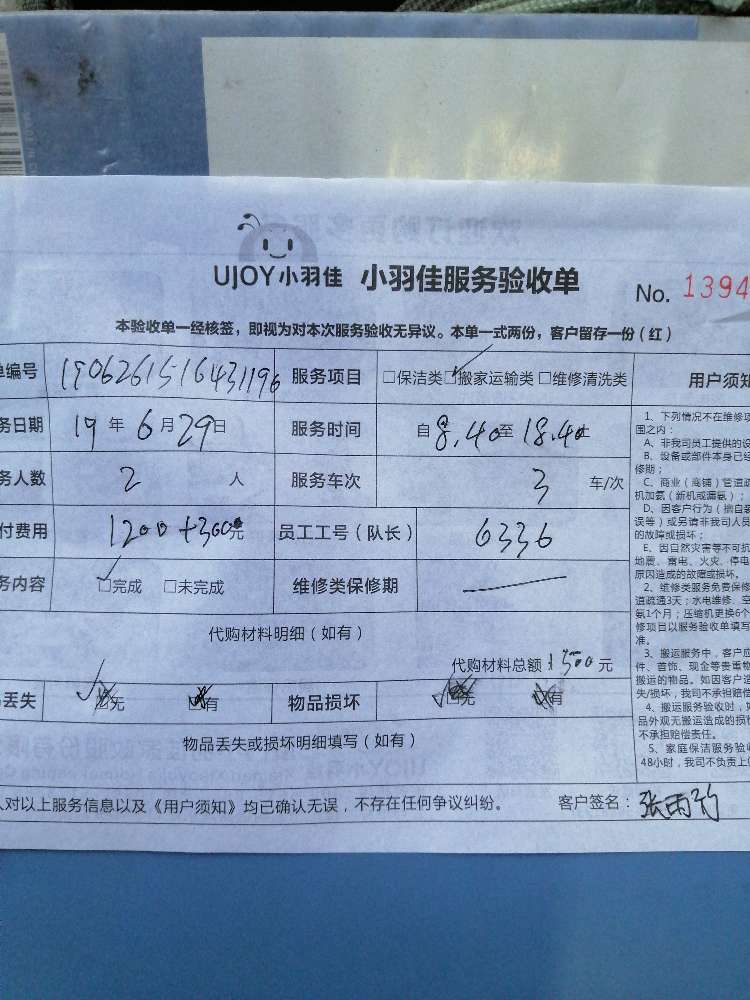 UJOY小羽佳 小羽佳服务验收单 No. 1394
本验收单一经核签，即视为对本次服务验收无异议。本单一式两份，客户留存一份（红）
单编号 1906261516431196 服务项目 □保洁类 □搬家运输类 □维修清洗类 用户须知
务日期 19年6月29日 服务时间 自8.40至18.40止
务人数 2 人 服务车次 3 车/次
付费用 1200+300元 员工工号（队长） 6336
务内容 □完成 □未完成 维修类保修期
代购材料明细（如有）
代购材料总额 1500元
丢失 □无 □有 物品损坏 □无 □有
物品丢失或损坏明细填写（如有）
人对以上服务信息以及《用户须知》均已确认无误，不存在任何争议纠纷。 客户签名：张雨
1、下列情况不在维修项
围之内：
A、非我司员工提供的设
B、设备或部件本身已经
修期；
C、商业（商铺）管道疏
机加氨（新机或漏氨）；
D、因客户行为（擅自装
误等）或另请非我司人员
的故障或损坏；
E、因自然灾害等不可抗
地震、雷电、火灾、停电
原因造成的故障或损坏。
2、维修类服务免费保修
道疏通3天；水电维修、空
氨1个月；压缩机更换6个
修项目以服务验收单填写
准。
3、搬运服务中，客户应
件、首饰、现金等贵重物
搬运的物品。如因客户造
失/损坏，我司不承担赔偿
4、搬运服务验收时，如
品外观无搬运造成的损
不承担赔偿责任。
5、家庭保洁服务验收
48小时，我司不负责上